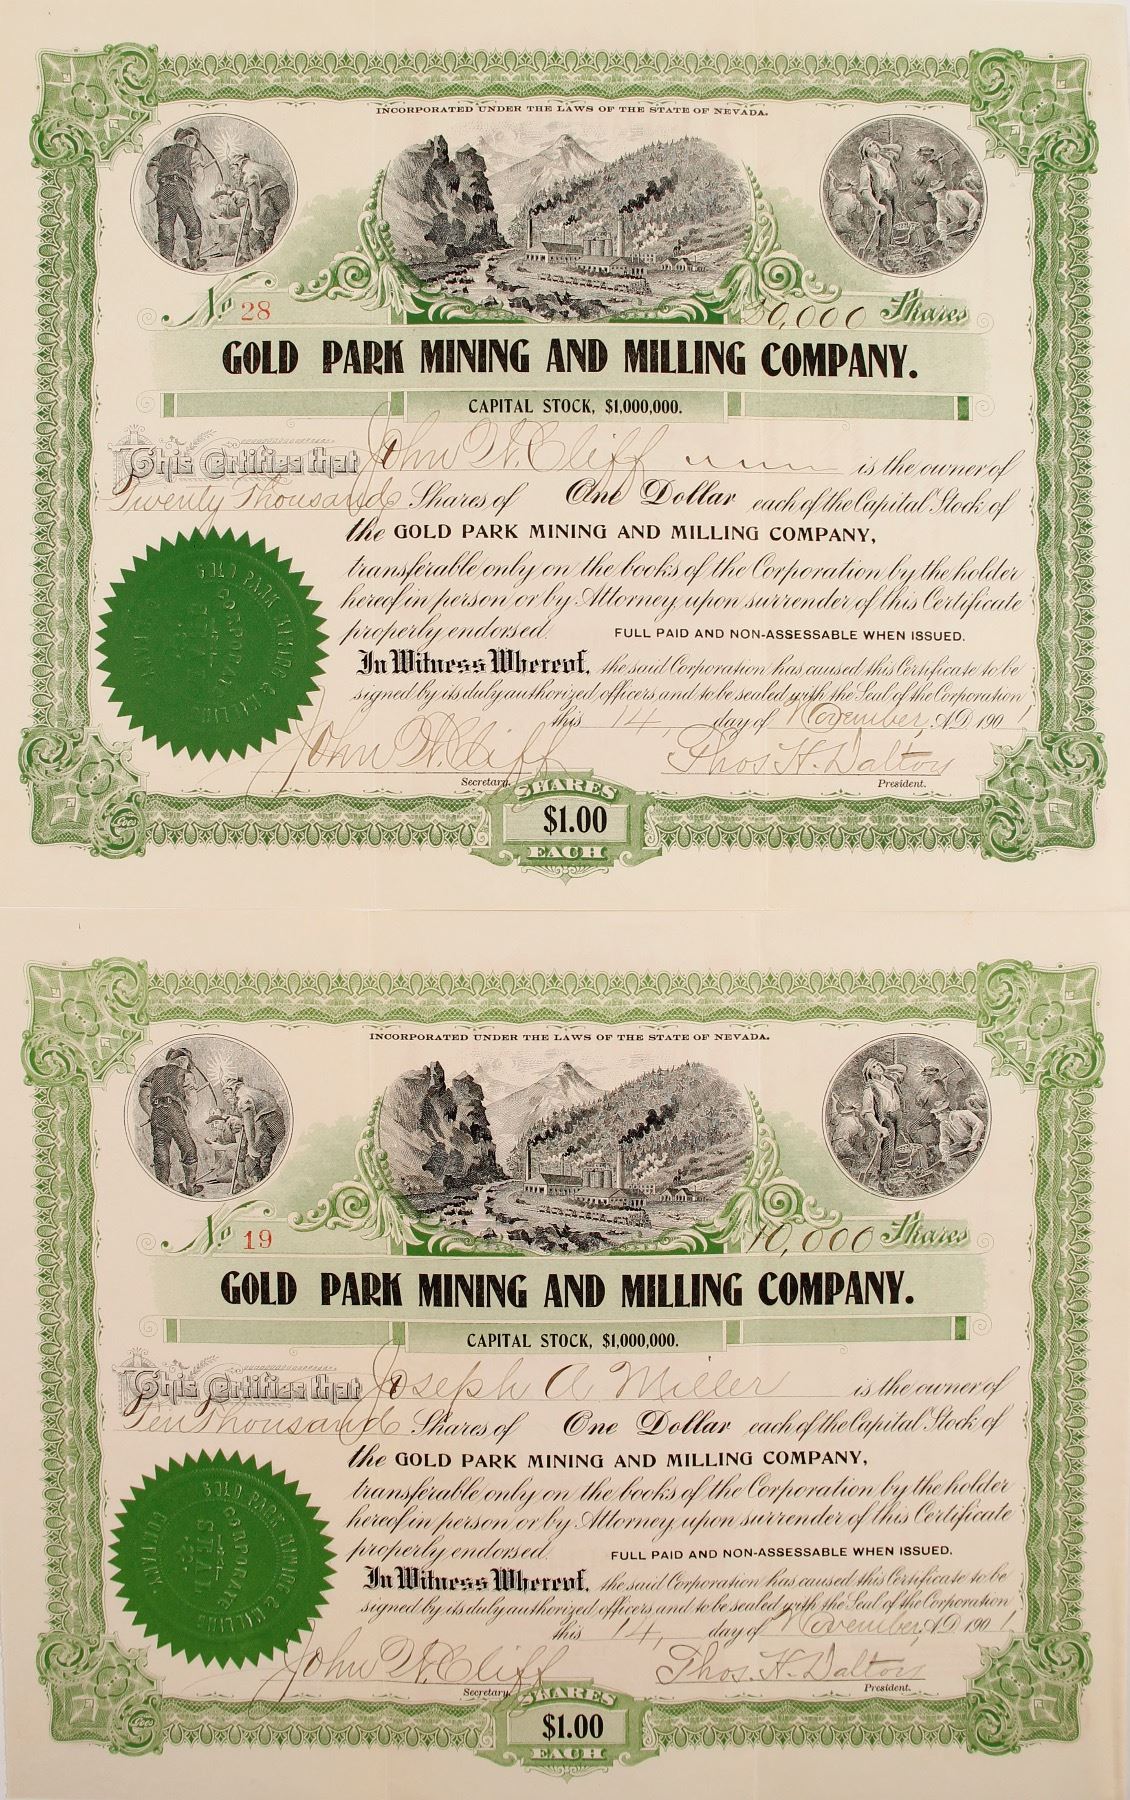 INCORPORATED UNDER THE LAWS OF THE STATE OF NEVADA.
No 28 20,000 Shares
GOLD PARK MINING AND MILLING COMPANY.
CAPITAL STOCK, $1,000,000.
This Certifies that John W. Cliff is the owner of
Twenty Thousand Shares of One Dollar each of the Capital Stock of
the GOLD PARK MINING AND MILLING COMPANY,
transferable only on the books of the Corporation by the holder
hereof in person or by Attorney, upon surrender of this Certificate
properly endorsed. FULL PAID AND NON-ASSESSABLE WHEN ISSUED.
In Witness Whereof, the said Corporation has caused this Certificate to be
signed by its duly authorized officers and to be sealed with the Seal of the Corporation
this 14, day of November, A.D. 1901
John W. Cliff Thos. H. Dalton
Secretary. President.
GOLD PARK MINING & MILLING
CORPORATE
SHARES
$1.00
EACH
Goes
INCORPORATED UNDER THE LAWS OF THE STATE OF NEVADA.
No 19 10,000 Shares
GOLD PARK MINING AND MILLING COMPANY.
CAPITAL STOCK, $1,000,000.
This Certifies that Joseph A Miller is the owner of
Ten Thousand Shares of One Dollar each of the Capital Stock of
the GOLD PARK MINING AND MILLING COMPANY,
transferable only on the books of the Corporation by the holder
hereof in person or by Attorney, upon surrender of this Certificate
properly endorsed. FULL PAID AND NON-ASSESSABLE WHEN ISSUED.
In Witness Whereof, the said Corporation has caused this Certificate to be
signed by its duly authorized officers and to be sealed with the Seal of the Corporation
this 14, day of November, A.D. 1901
John W. Cliff Thos. H. Dalton
Secretary. President.
GOLD PARK MINING & MILLING COMPANY
CORPORATE
SEAL
SHARES
$1.00
EACH
Goes